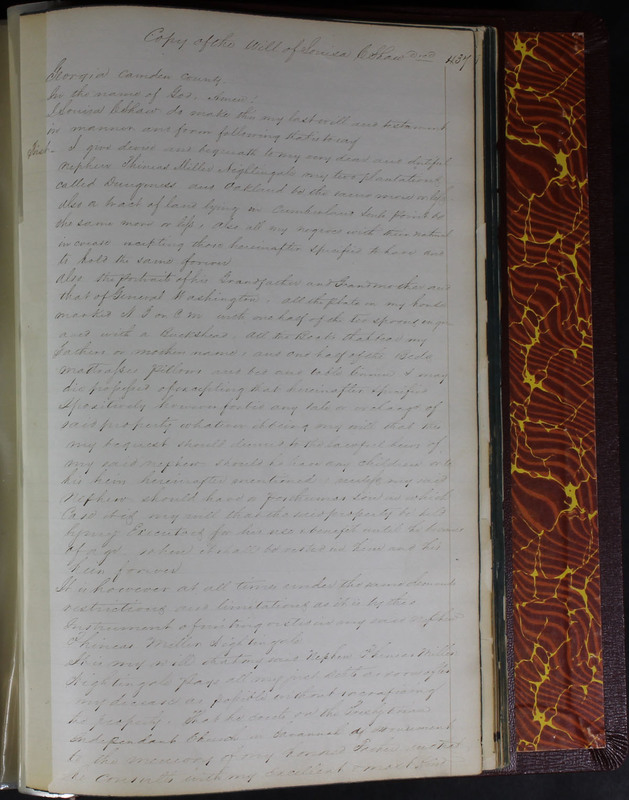 Copy of the Will of Louisa C Shaw Decd 437
Georgia Camden County
In the name of God - Amen!
I Louisa C Shaw do make this my last will and testament
in manner and form following that is to say
First - I give devise and bequeath to my very dear and dutiful
nephew Phineas Miller Nightingale my two plantations
called Dungeness and Oakland be the same more or less
also a tract of land lying in Cumberland be the
the same more or less, also all my negroes with their natural
increase excepting those hereinafter specified to have and
to hold the same forever
Also the portrait of his Grandfather and Grandmother and
that of General Washington - all the plate in my house
marked N. G or C M with one half of the tea spoons
and with a Buckshead. All the Books that bear my
Father or mothers name, and one half of all the Beds
mattrasses Pillows and bed and table linnen I may
die possessed of excepting that hereinafter specified
I positively however forbid any sale or exchange of
said property whatever it being my will that the
my bequest should descend to the lawful heirs of
my said nephew should he have any children or to
his heirs hereinafter mentioned, unless my said
Nephew should have a posthumous son in which
case it is my will that the said property be held
by my Executors for his use & benefit until he becomes
of age, when it shall be vested in him and his
heirs forever
It is however at all times under the same
restrictions and limitations as it is by this
Instrument of writing vested in my said nephew
Phineas Miller Nightingale
It is my will that my said Nephew Phineas Miller
Nightingale pays all my just debts as soon after
my decease as possible without sacrificing
the property. That he erects in the
Independent Church in Savannah a monument
to the memory of my honored Father mother
He consults with my excellent & most